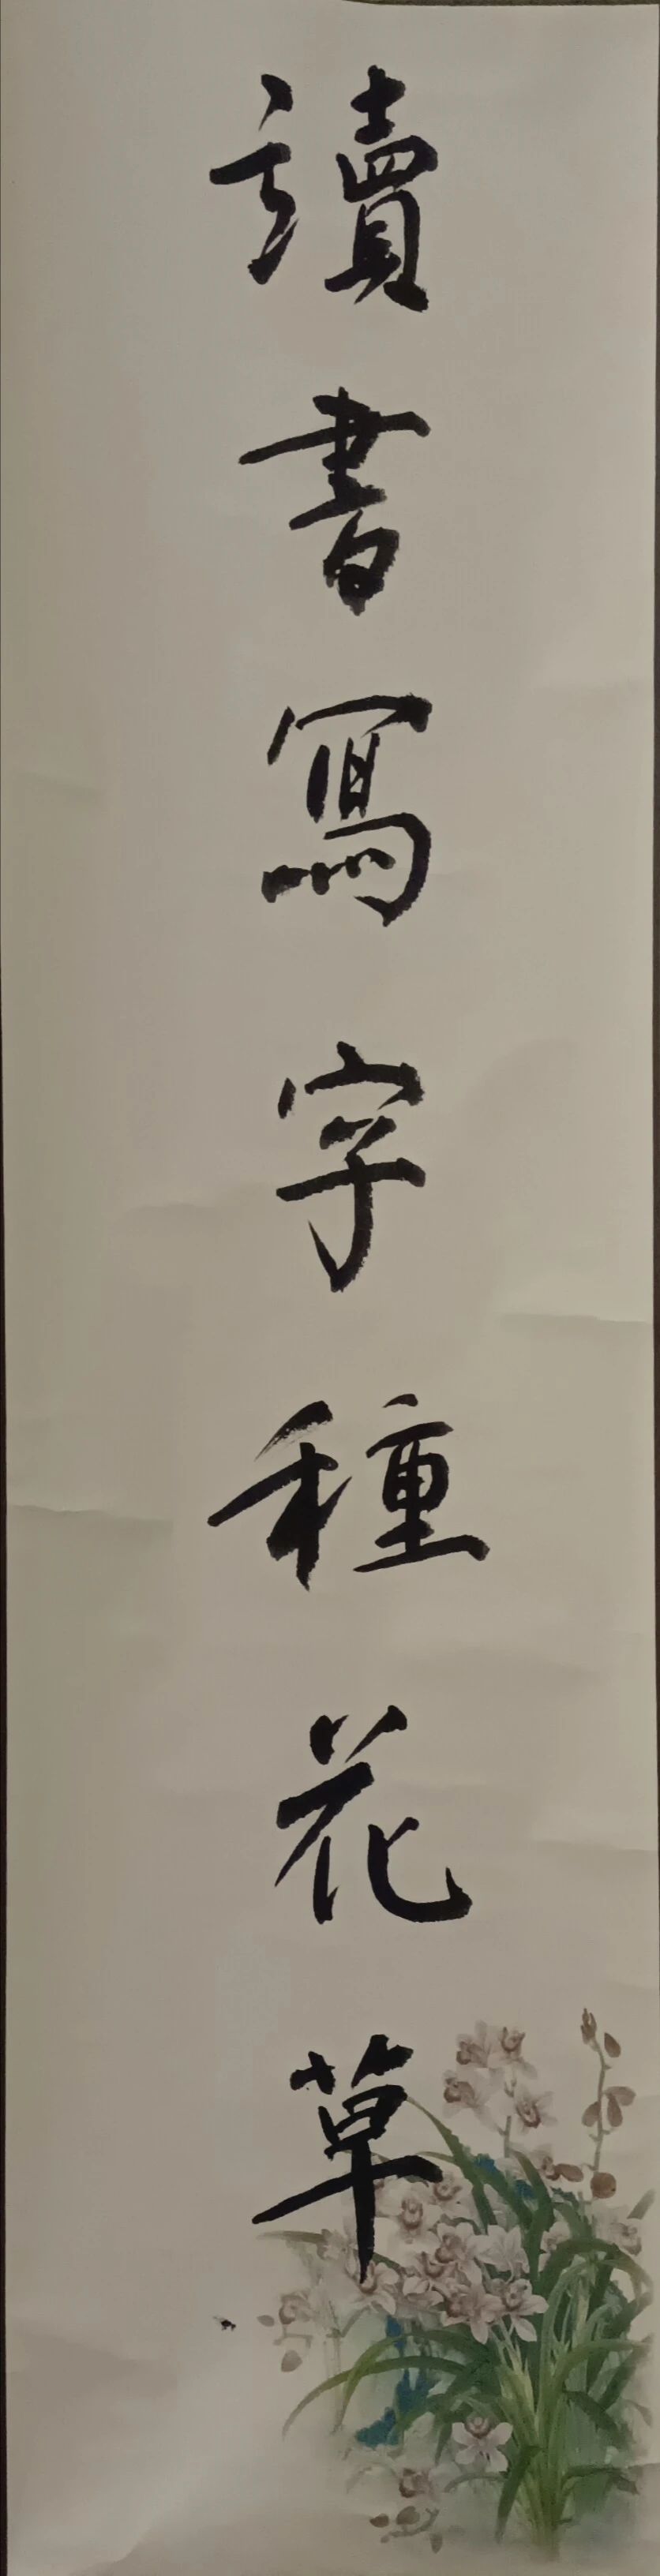 讀書寫字種花草